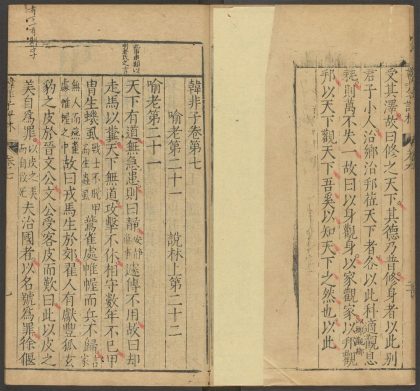 受其澤故曰修之天下其德乃普修身者以此別
君子小人治鄉治邦莅天下者各以此科適觀息
耗則萬不失一故曰以身觀身以家觀家以邦觀
邦以天下觀天下吾奚以知天下之然也以此
韓非子卷第七
喻老第二十一 說林上第二十二
喻老第二十一
天下有道無急患則曰靜遽傳不用故曰却
走馬以糞天下無道攻擊不休相守數年不已甲
冑生蟣虱戰士不脫甲而生蟣虱鷰雀處帷幄而兵不歸
無人而燕雀處帷幄之中故曰戎馬生於郊翟人有獻豐狐玄
豹之皮於晉文公文公受客皮而歎曰此以皮之
美自為罪以皮之美而自致死夫治國者以名號為罪徐偃